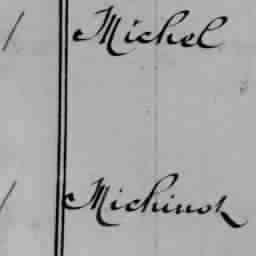 / Michel
/ Michinot